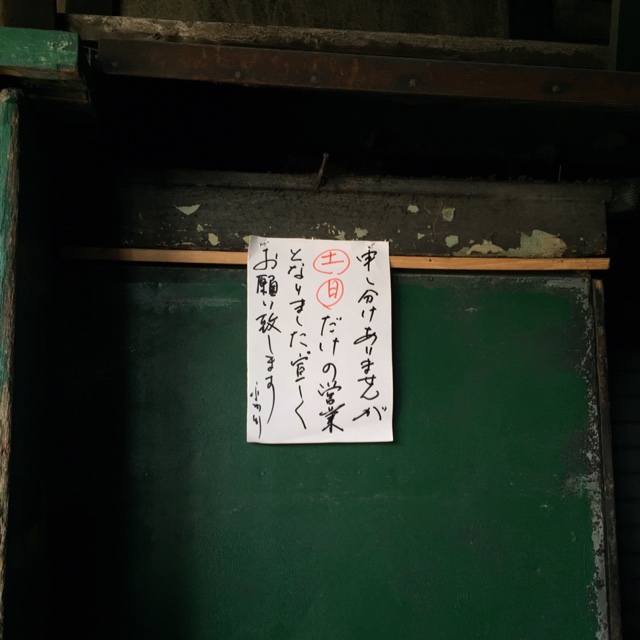 申し分けありませんが
土日だけの営業
となりました、宜しく
お願い致します